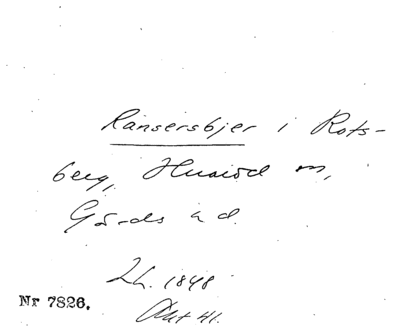 Ransersbjer i Rots-
berg, Huaröd sn,
Gärds hd.
Lh. 1848
Akt 41.
Nr 7826.